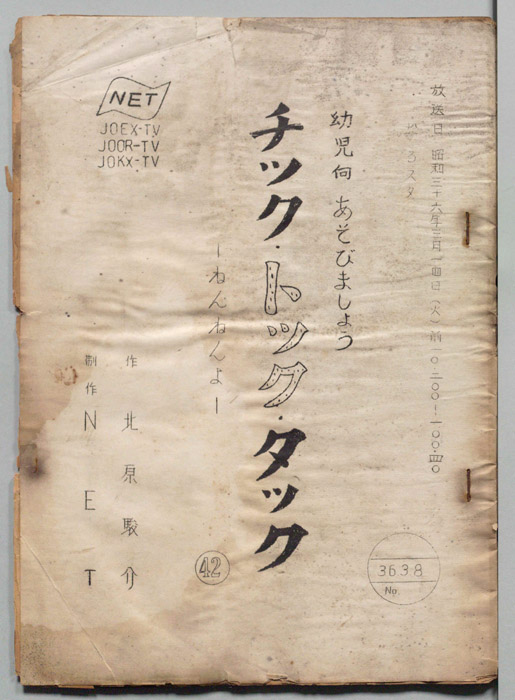 放送日 昭和三十六年三月一四日（火）前一〇.二〇〇～一〇〇.四〇
幼児向 あそびましょう
チック・トック・タック
ーねんねんよー
42
作 北原駿介
制作 NET
NET
JOEX-TV
JOOR-TV
JOKX-TV
36.3.8
No.